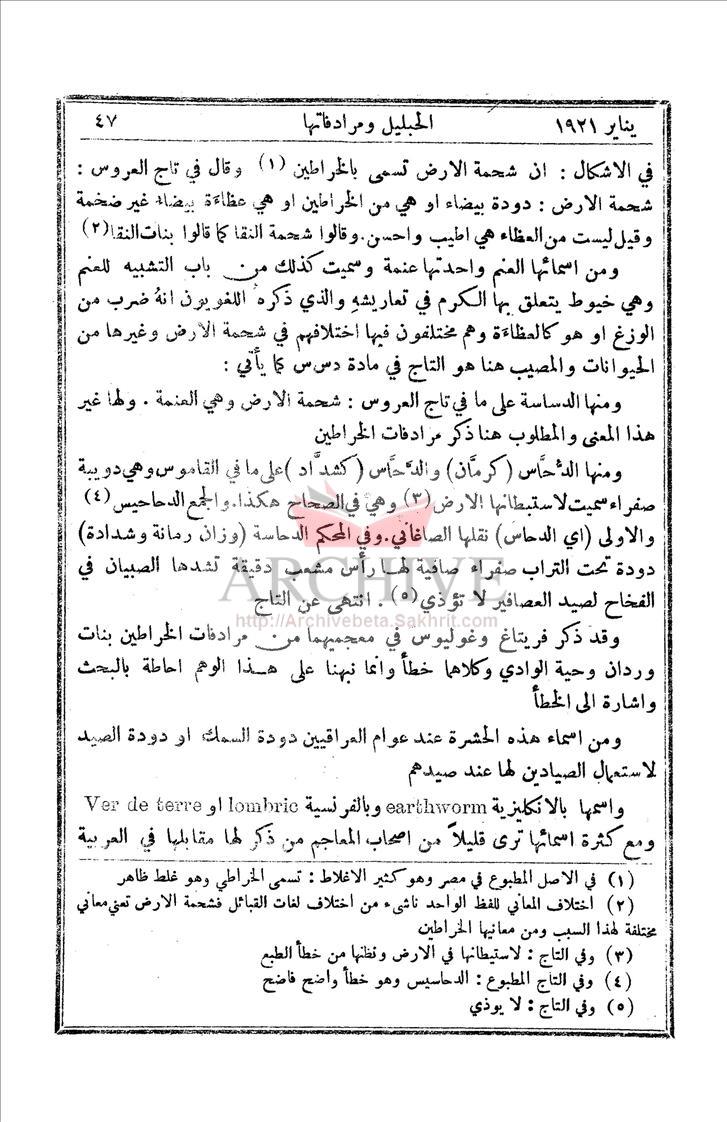 يناير ١٩٢١ الحبليل ومرادفاتها ٤٧
في الاشكال : ان شحمة الارض تسمى بالخراطين (١) وقال في تاج العروس :
شحمة الارض : دودة بيضاء او هي من الخراطين او هي عظاءة بيضاء غير ضخمة
وقيل ليست من العظاء هي اطيب واحسن . وقالوا شحمة النقا كما قالوا بنات النقا (٢)
ومن اسمائها العنم واحدتها عنمة وسميت كذلك من باب التشبيه للعنم
وهي خيوط يتعلق بها الكرم في تعاريشهِ والذي ذكره اللغويون انهُ ضرب من
الوزغ او هو كالعظاءة وهم مختلفون فيها اختلافهم في شحمة الارض وغيرها من
الحيوانات والمصيب هنا هو التاج في مادة دس س كما يأتي :
ومنها الدساسة على ما في تاج العروس : شحمة الارض وهي العنمة . ولها غير
هذا المعنى والمطلوب هنا ذكر مرادفات الخراطين
ومنها الدُّحَّاس (كرمَّان) والدَّحَّاس (كشدَّاد) على ما في القاموس وهي دويبة
صفراء سميت لاستبطانها الارض (٣) وهي في الصحاح هكذا . والجمع الدحاحيس (٤)
والاولى (اي الدحاس) نقلها الصاغاني . وفي المحكم الدحاسة (وزان رمانة وشدادة)
دودة تحت التراب صفراء صافية لها رأس مشعب دقيقة تشدها الصبيان في
الفخاخ لصيد العصافير لا تؤذي (٥) . انتهى عن التاج
وقد ذكر فريتاغ وغوليوس في معجميهما من مرادفات الخراطين بنات
وردان وحية الوادي وكلاهما خطأ وانما نبهنا على هذا الوهم احاطة بالبحث
واشارة الى الخطأ
ومن اسماء هذه الحشرة عند عوام العراقيين دودة السمك او دودة الصيد
لاستعمال الصيادين لها عند صيدهم
واسمها بالانكليزية earthworm وبالفرنسية lombric او Ver de terre
ومع كثرة اسمائها ترى قليلاً من اصحاب المعاجم من ذكر لها مقابلها في العربية
(١) في الاصل المطبوع في مصر وهو كثير الاغلاط : تسمى الخراطي وهو غلط ظاهر
(٢) اختلاف المعاني للفظ الواحد ناشىء من اختلاف لغات القبائل فشحمة الارض تعني معاني
مختلفة لهذا السبب ومن معانيها الخراطين
(٣) وفي التاج : لاستيطانها في الارض ونظنها من خطأ الطبع
(٤) وفي التاج المطبوع : الدحاسيس وهو خطأ واضح فاضح
(٥) وفي التاج : لا يوذي
ARCHIVE
http://Archivebeta.Sakhrit.com